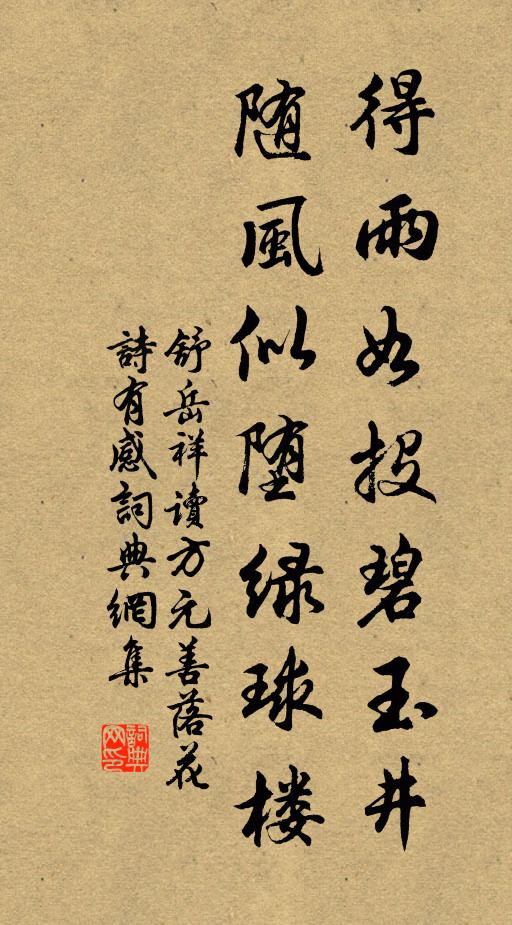 得雨如投碧玉井
随風似堕绿球楼
舒岳祥读方元善落花
詩有感詞典網集
詞典网印